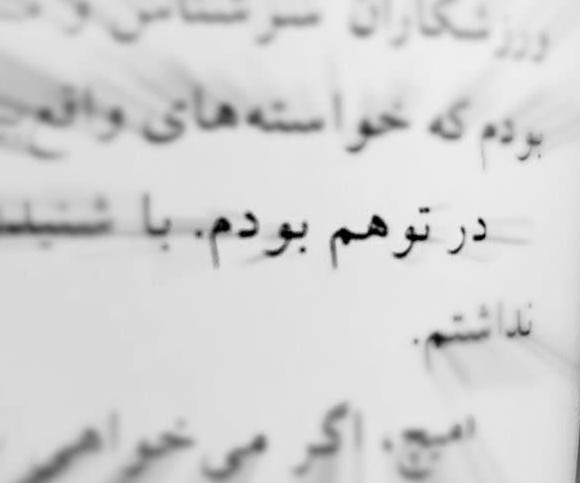 ورزشکاران سرشناس و
بودم که خواسته‌های واقع
در توهم بودم. با شنید
نداشتم.
اگر می‌خواهی